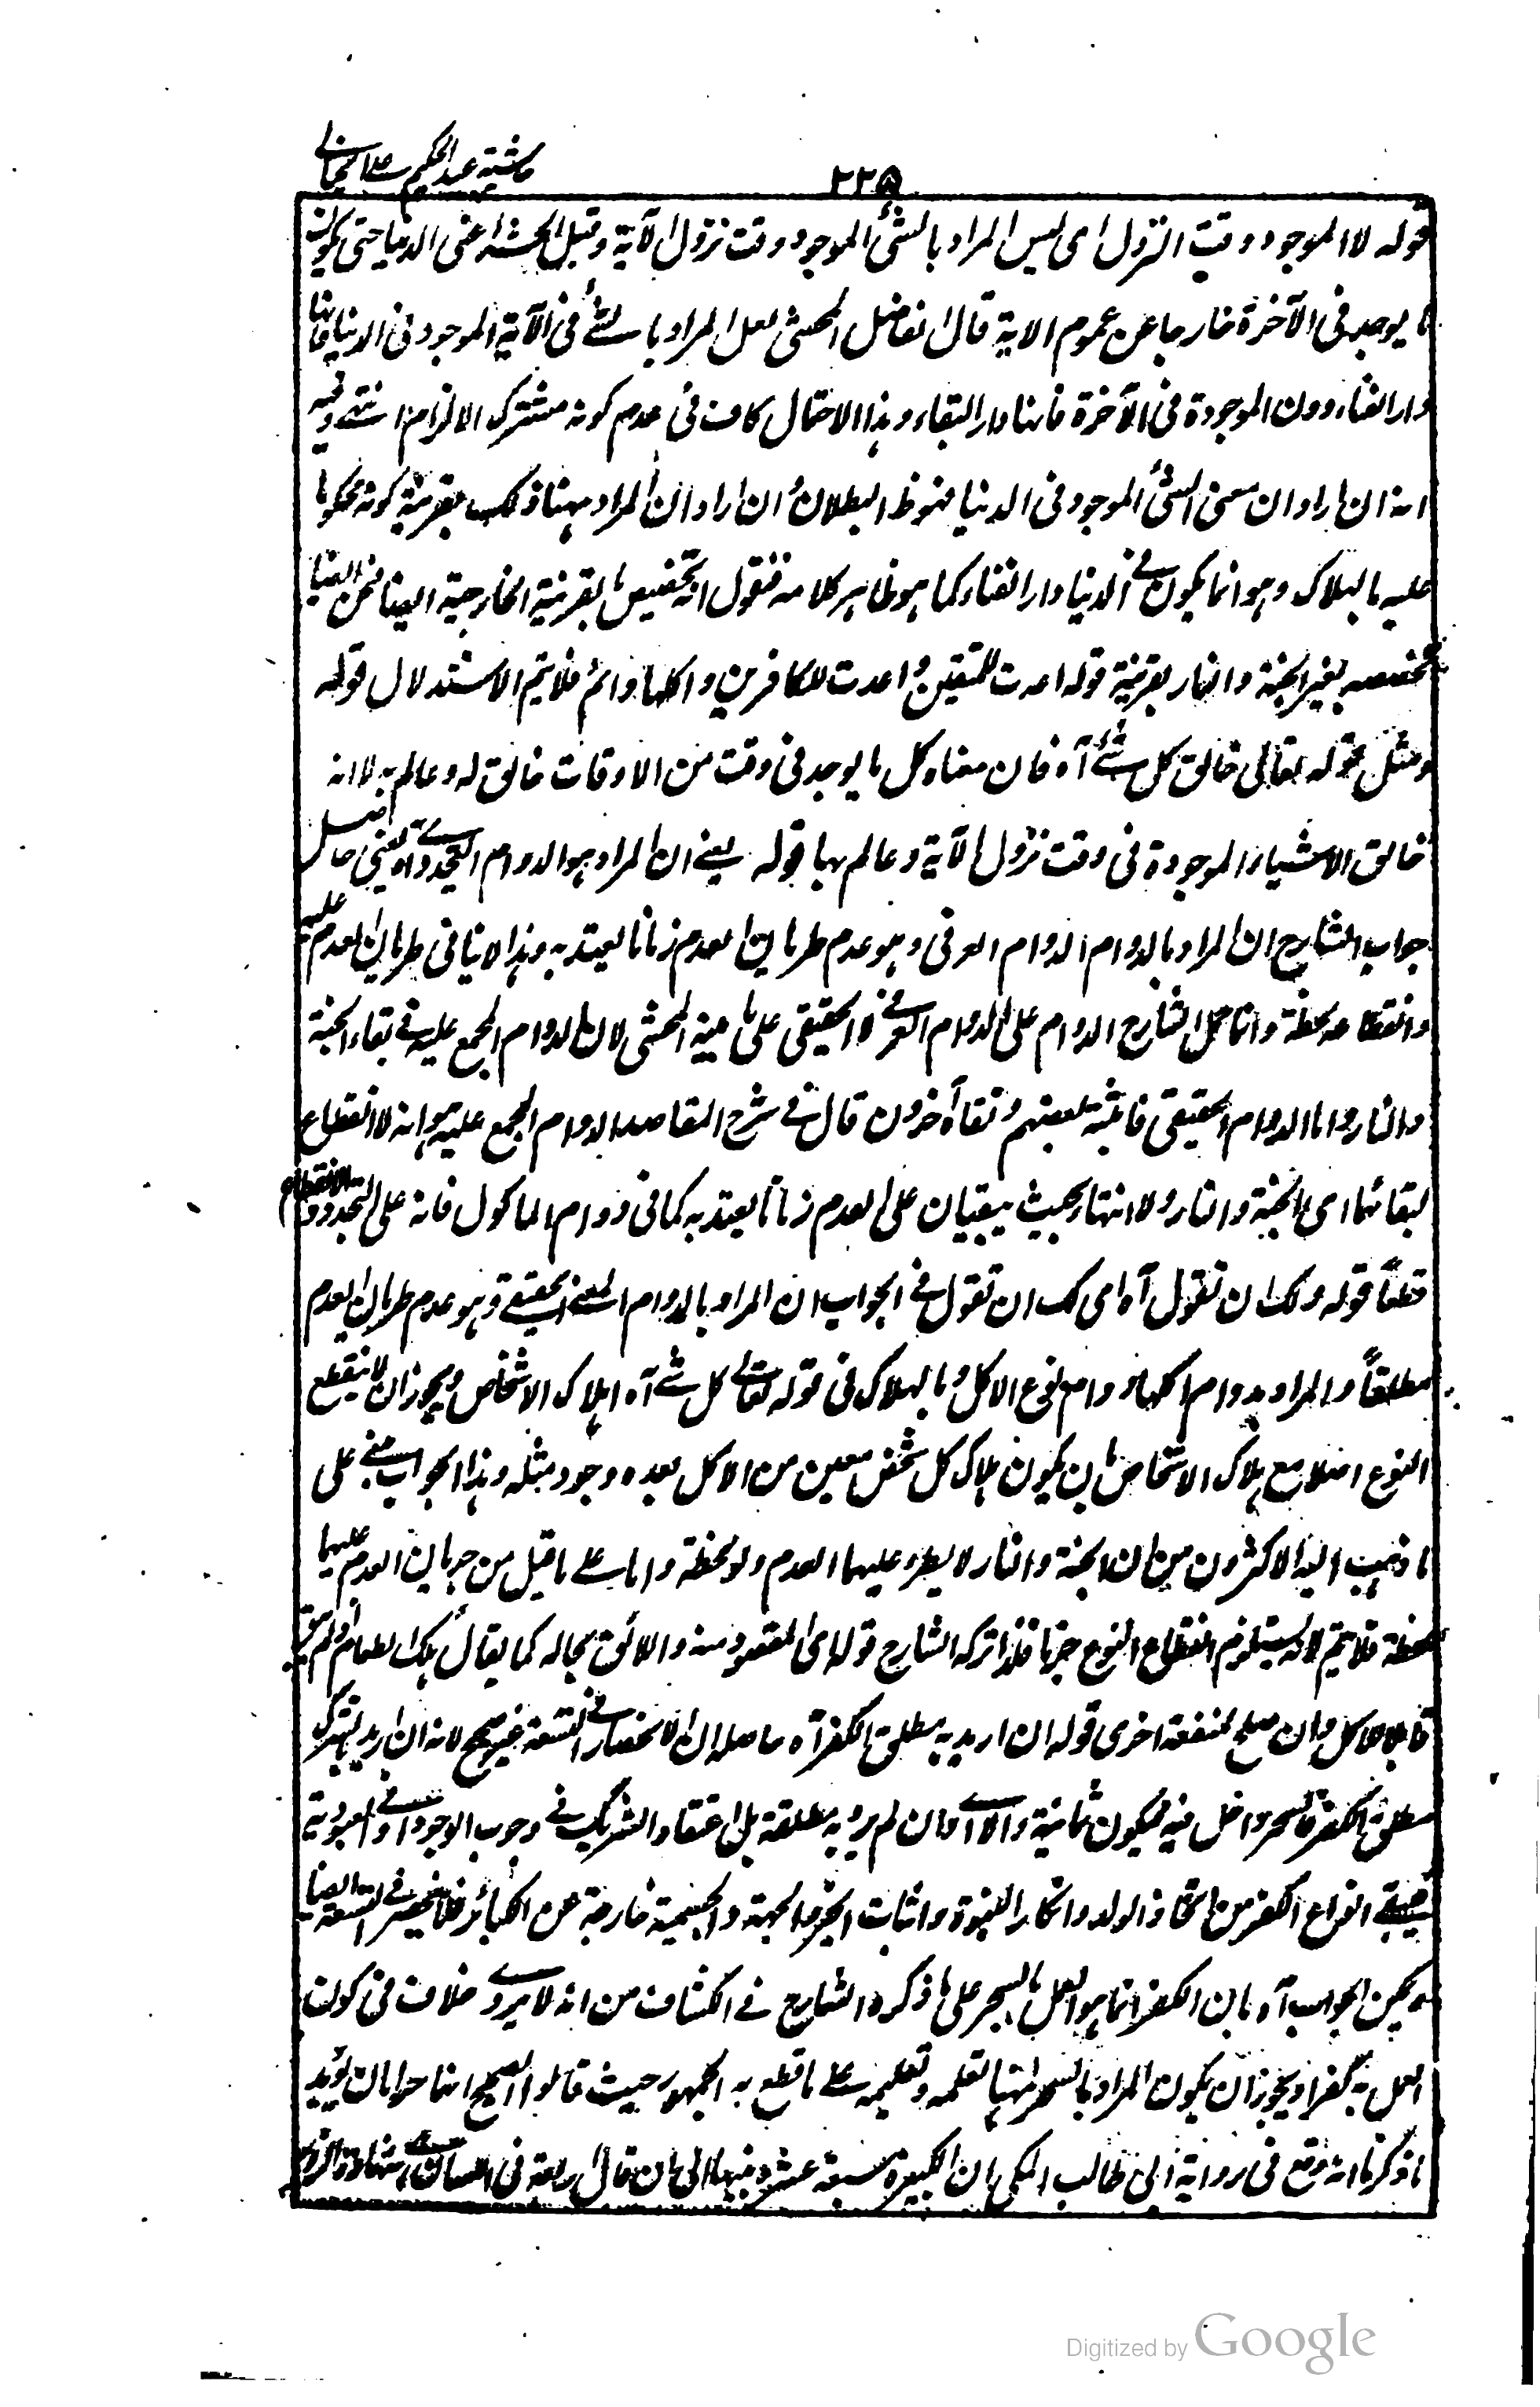 حاشية عبد الحكيم على الخيالي
٢٢٥
قوله لا الموجود وقت النزول اى ليس المراد بالشئ الموجود وقت نزول الآية وقبل الحشر اعنى الدنيا حتى يكون
ما يوجد فى الآخرة خارجا عن عموم الاية قال الفاضل المحشى لعل المراد بالشئ فى الآية الموجود فى الدنيا فانها
دار الفناء دون الموجودة فى الآخرة فانها دار البقاء وهذا الاحتمال كاف فى عدم كونه مشترك الالزام انتهى وفيه
انه ان اراد ان معنى الشئ الموجود فى الدنيا فهو ظ البطلان وان اراد ان المراد ههنا ذلك بقرينة كونه محكوما
عليه بالهلاك وهو انما يكون فى الدنيا دار الفناء كما هو ظاهر كلامه فنقول انه تخصيص بالقرينة الخارجية ايضا فنحن ايضا
نخصصه بغير الجنة والنار بقرينة قوله اعدت للمتقين واعدت للكافرين واكلها دائم فلا يتم الاستدلال قوله
ومثل قوله تعالى خالق كل شئ آه فان معناه كل ما يوجد فى وقت من الاوقات خالق له وعالم به لا انه
خالق الاشياء الموجودة فى وقت نزول الآية وعالم بها قوله يعنى ان المراد هو الدوام التجددى آه يعنى حاصل
جواب الشارح ان المراد بالدوام الدوام العرفى وهو عدم طريان العدم زمانا يعتد به وهذا لا ينافى طريان العدم عليه
وانقطاعه لحظة وانما حمل الشارح الدوام على الدوام العرفى لا الحقيقى على ما بينه المحشى لان الدوام المجمع عليه فى بقاء الجنة
والنار واما الدوام الحقيقى فاثبته بعضهم ونفاه آخرون قال فى شرح المقاصد الدوام المجمع عليه هو انه لا انقطاع
لبقائهما اى الجنة والنار ولا انتهاء بحيث يبقيان على العدم زمانا يعتد به كما فى دوام الماكول فانه على التجدد والانقضاء
قطعاً قوله ولك ان تقول آه اى لك ان تقول فى الجواب ان المراد بالدوام المعنى الحقيقى وهو عدم طريان العدم
مطلقاً والمراد بدوام اكلها دوام نوع الاكل وبالهلاك فى قوله تعالى كل شئ آه هلاك الاشخاص ويجوز ان لا ينقطع
النوع اصلا مع هلاك الاشخاص بان يكون هلاك كل شخص معين من الاكل بعده وجود مثله وهذا الجواب مبنى على
ما ذهب اليه الاكثرون من ان الجنة والنار لا يطرء عليهما العدم ولو لحظة واما على ما قيل من جريان العدم عليهما
لحظة فلا يتم لانه يستلزم انقطاع النوع جزما فلذا تركه الشارح قوله اى المقصود منه واللائق بحاله كما يقال هلك الطعام اذا لم يبق
قابلا للاكل وان صلح لمنفعة اخرى قوله ان اريد به مطلق الكفر آه حاصله ان الانحصار فى التسعة غير صحيح لانه ان اريد بالشرك
مطلق الكفر فالسحر داخل فيه فيكون ثمانية والا اى ان لم يرد به مطلقة بل اعتقاد الشريك فى وجوب الوجود او فى المعبودية
فيبقى انواع الكفر من اتخاذ الولد وانكار النبوة واثبات الحيز والجهة والجسمية خارجة عن الكبائر فلا ينحصر فى التسعة ايضا
ويمكن الجواب آه بان الكفر انما هو العمل بالسحر على ما ذكره الشارح فى الكشاف من انه لا يروى خلاف فى كون
العمل به كفرا ويجوز ان يكون المراد بالسحر ههنا تعلمه وتعليمه على ما قطع به الجمهور حيث قالوا الصحيح انهما حرامان يؤيد
ما ذكرنا انه وقع فى رواية ابى طالب المكى ان الكبيرة سبعة عشر وبينها الى ان قال اربعة فى اللسان شهادة الزور
Digitized by Google